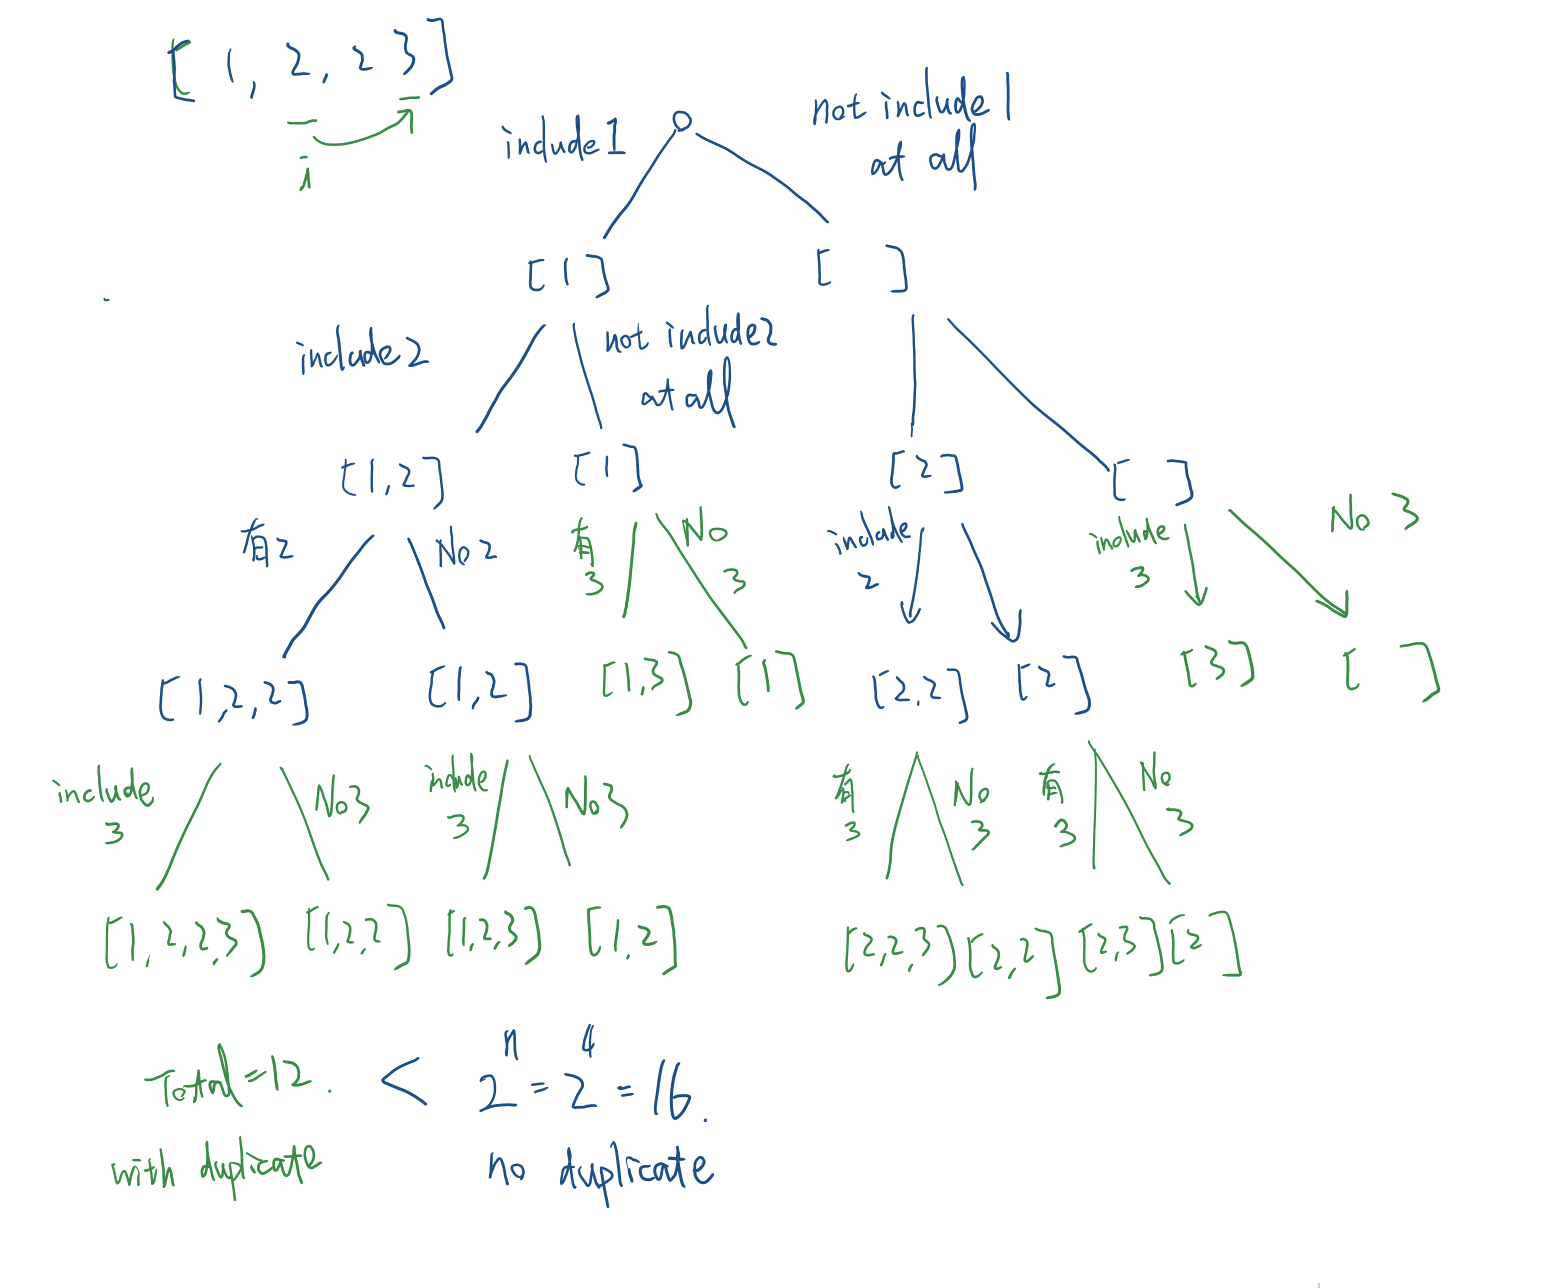 [ 1, 2, 2 3 ]
i
include 1
not include 1
at all
[ 1 ]
[ ]
include 2
not include 2
at all
[1,2]
[1]
[2]
[ ]
有2
No 2
有
3
No
3
include
2
include
3
No 3
[1,2,2]
[1,2]
[1,3]
[1]
[2,2]
[2]
[3]
[ ]
include
3
No3
include
3
No3
有
3
No
3
有
3
No
3
[1,2,2,3]
[1,2,2]
[1,2,3]
[1,2]
[2,2,3]
[2,2]
[2,3]
[2]
Total=12. < 2^n = 2^4 = 16.
with duplicate
no duplicate